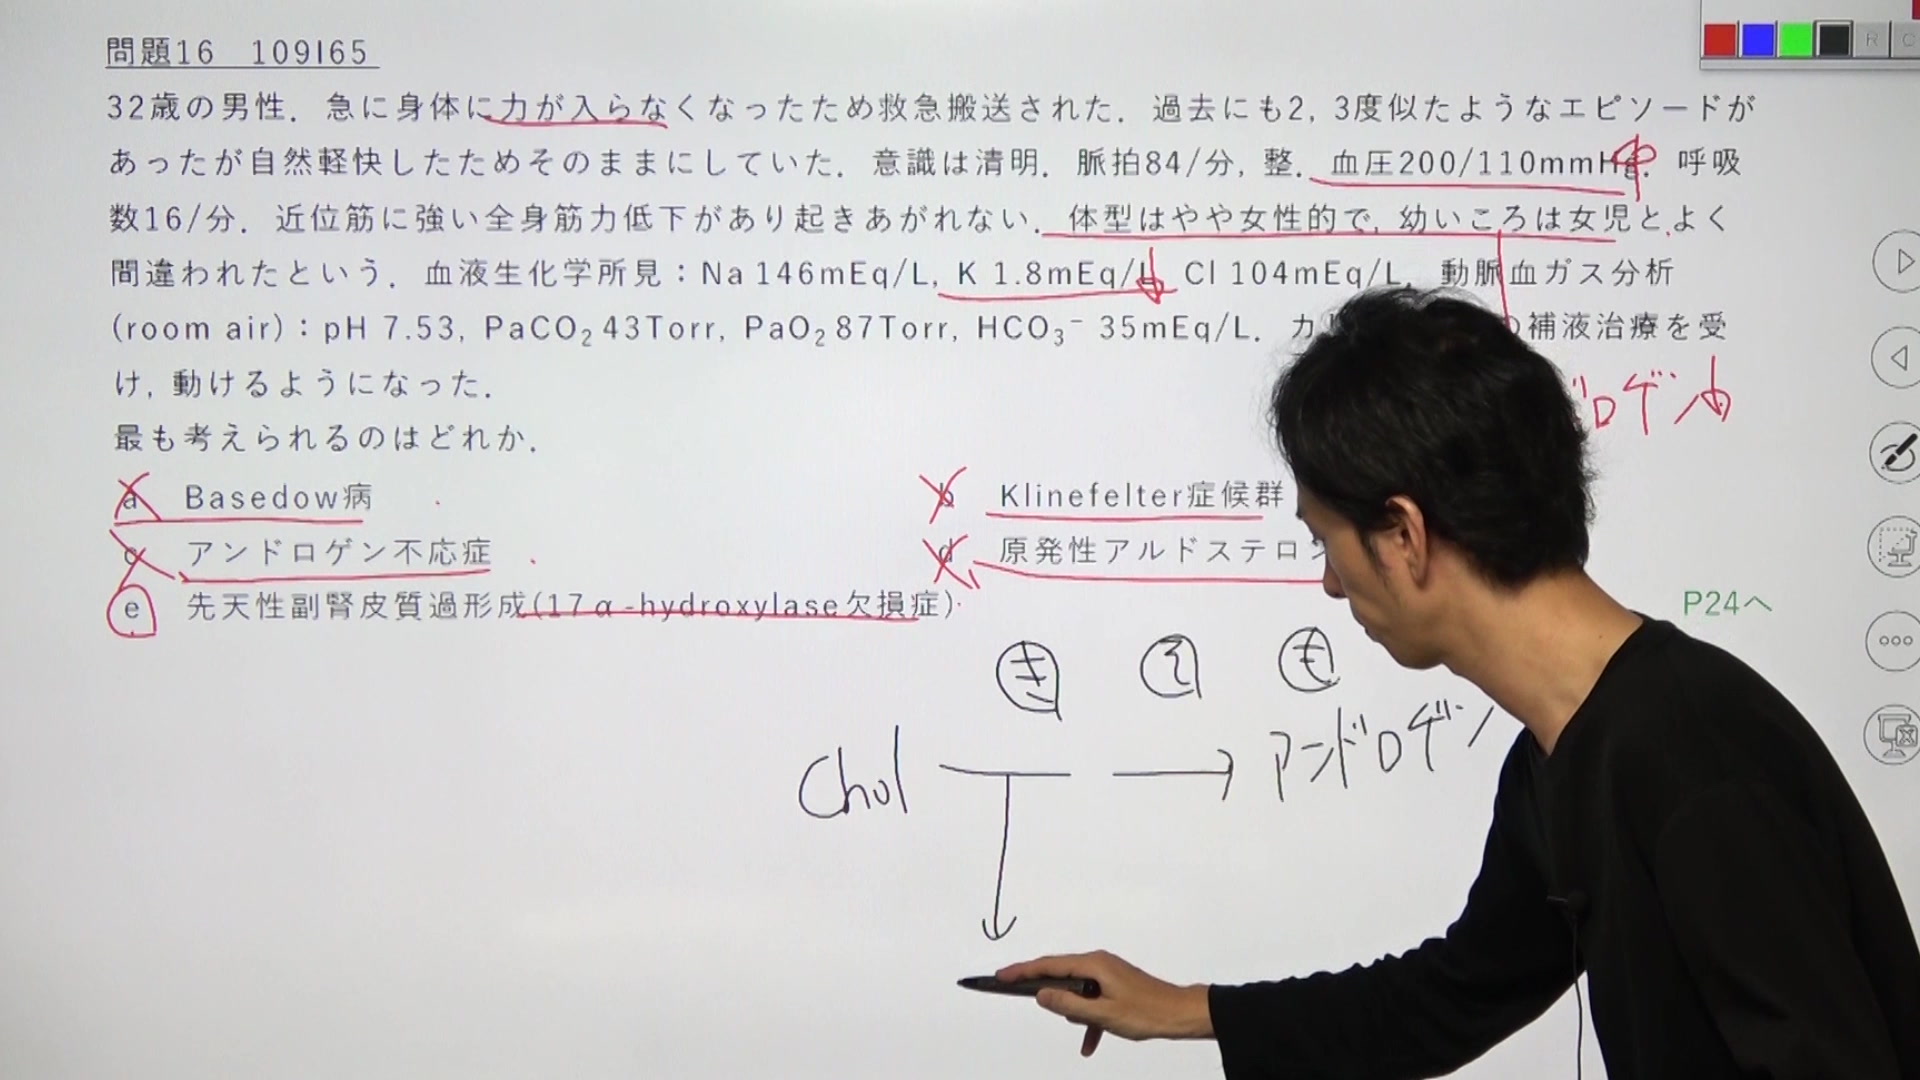 問題16 109I65
32歳の男性．急に身体に力が入らなくなったため救急搬送された．過去にも2, 3度似たようなエピソードが
あったが自然軽快したためそのままにしていた．意識は清明．脈拍84/分, 整．血圧200/110mmHg．呼吸
数16/分．近位筋に強い全身筋力低下があり起きあがれない．体型はやや女性的で, 幼いころは女児とよく
間違われたという．血液生化学所見：Na 146mEq/L, K 1.8mEq/L, Cl 104mEq/L, 動脈血ガス分析
(room air)：pH 7.53, PaCO₂ 43Torr, PaO₂ 87Torr, HCO₃⁻ 35mEq/L．カ の補液治療を受
け, 動けるようになった．
ドロゲン↓
最も考えられるのはどれか．
a Basedow病
b Klinefelter症候群
c アンドロゲン不応症
d 原発性アルドステロン
e 先天性副腎皮質過形成(17α-hydroxylase欠損症)
P24へ
き そ も
Chol → アンドロゲン
R
C